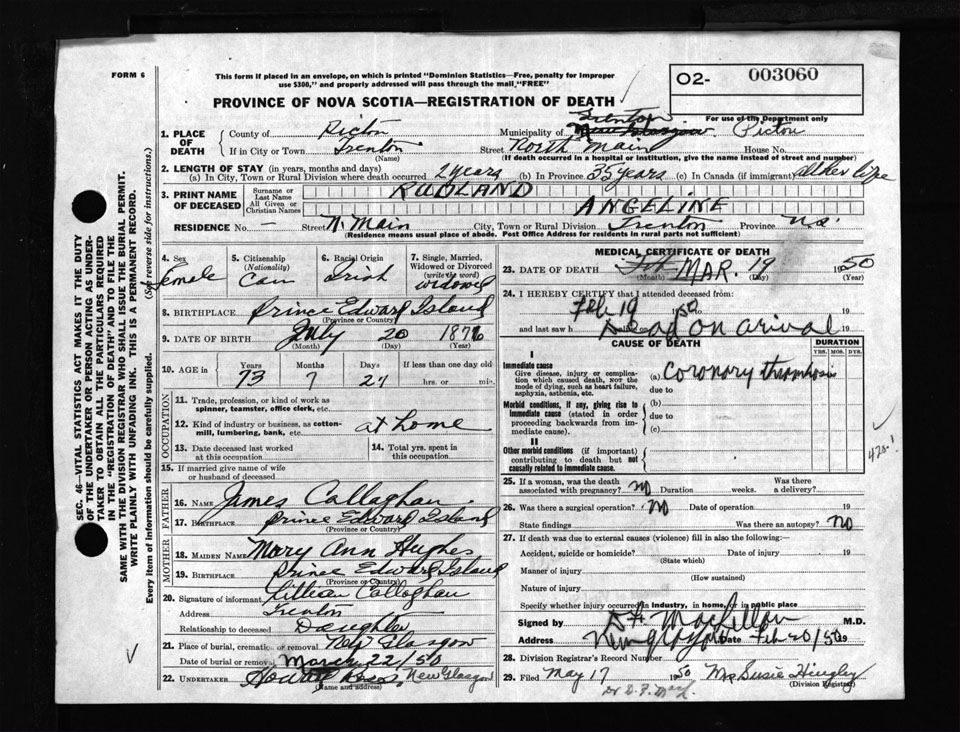 FORM 6
This form if placed in an envelope, on which is printed "Dominion Statistics—Free, penalty for improper
use $300," and properly addressed will pass through the mail "FREE"
PROVINCE OF NOVA SCOTIA—REGISTRATION OF DEATH
O2- 003060
For use of the Department only
1. PLACE OF DEATH
County of Pictou Municipality of Trenton New Glasgow Pictou
If in City or Town Trenton Street North Main House No.
(Name) (If death occurred in a hospital or institution, give the name instead of street and number)
2. LENGTH OF STAY (in years, months and days)
(a) In City, Town or Rural Division where death occurred 2 years (b) In Province 35 years (c) In Canada (if immigrant) all her life
3. PRINT NAME OF DECEASED
Surname or Last Name RUDLAND
All Given or Christian Names ANGELINE
RESIDENCE No. — Street N. Main City, Town or Rural Division Trenton Province N.S.
(Residence means usual place of abode. Post Office Address for residents in rural parts not sufficient)
4. Sex Female
5. Citizenship (Nationality) Can
6. Racial Origin Irish
7. Single, Married, Widowed or Divorced (write the word) widowed
8. BIRTHPLACE Prince Edward Island
(Province or Country)
9. DATE OF BIRTH July 20 1876
(Month) (Day) (Year)
10. AGE in Years 73 Months 7 Days 27 If less than one day old hrs. or min.
OCCUPATION
11. Trade, profession, or kind of work as spinner, teamster, office clerk, etc.
12. Kind of industry or business, as cotton-mill, lumbering, bank, etc. at home
13. Date deceased last worked at this occupation
14. Total yrs. spent in this occupation
15. If married give name of wife or husband of deceased
FATHER
16. NAME James Callaghan
17. BIRTHPLACE Prince Edward Island
(Province or Country)
MOTHER
18. MAIDEN NAME Mary Ann Hughes
19. BIRTHPLACE Prince Edward Island
(Province or Country)
20. Signature of informant Lillian Callaghan
Address Trenton
Relationship to deceased Daughter
21. Place of burial, cremation or removal New Glasgow
Date of burial or removal March 22/50
22. UNDERTAKER New Glasgow
(Name and address)
MEDICAL CERTIFICATE OF DEATH
23. DATE OF DEATH MAR. 19 1950
(Month) (Day)
24. I HEREBY CERTIFY that I attended deceased from
Feb 19 50 to 19
and last saw h Dead on arival 19
CAUSE OF DEATH
DURATION
YRS. MOS. DYS.
I
Immediate cause
Give disease, injury or complication which caused death, NOT the mode of dying, such as heart failure, asphyxia, asthenia, etc.
(a) Coronary thrombosis
due to
Morbid conditions, if any, giving rise to immediate cause (stated in order proceeding backwards from immediate cause).
(b)
due to
(c)
II
Other morbid conditions (if important) contributing to death but not causally related to immediate cause.
25. If a woman, was the death associated with pregnancy? no Duration weeks. Was there a delivery?
26. Was there a surgical operation? No Date of operation 19
State findings Was there an autopsy? No
27. If death was due to external causes (violence) fill in also the following:
Accident, suicide or homicide? Date of injury 19
(State which)
Manner of injury
(How sustained)
Nature of injury
Specify whether injury occurred in industry, in home, or in public place
Signed by MacLellan M.D.
Address New Glasgow Date Feb 20/50 19
28. Division Registrar's Record Number
29. Filed May 17 1950 Mrs Susie Hingley
(Division Registrar)
SEC. 46—VITAL STATISTICS ACT MAKES IT THE DUTY
OF THE UNDERTAKER OR PERSON ACTING AS UNDER-
TAKER TO OBTAIN ALL THE PARTICULARS REQUIRED
IN THE "REGISTRATION OF DEATH" AND TO FILE THE
SAME WITH THE DIVISION REGISTRAR WHO SHALL ISSUE THE BURIAL PERMIT.
WRITE PLAINLY WITH UNFADING INK. THIS IS A PERMANENT RECORD.
Every item of information should be carefully supplied. (See reverse side for instructions.)